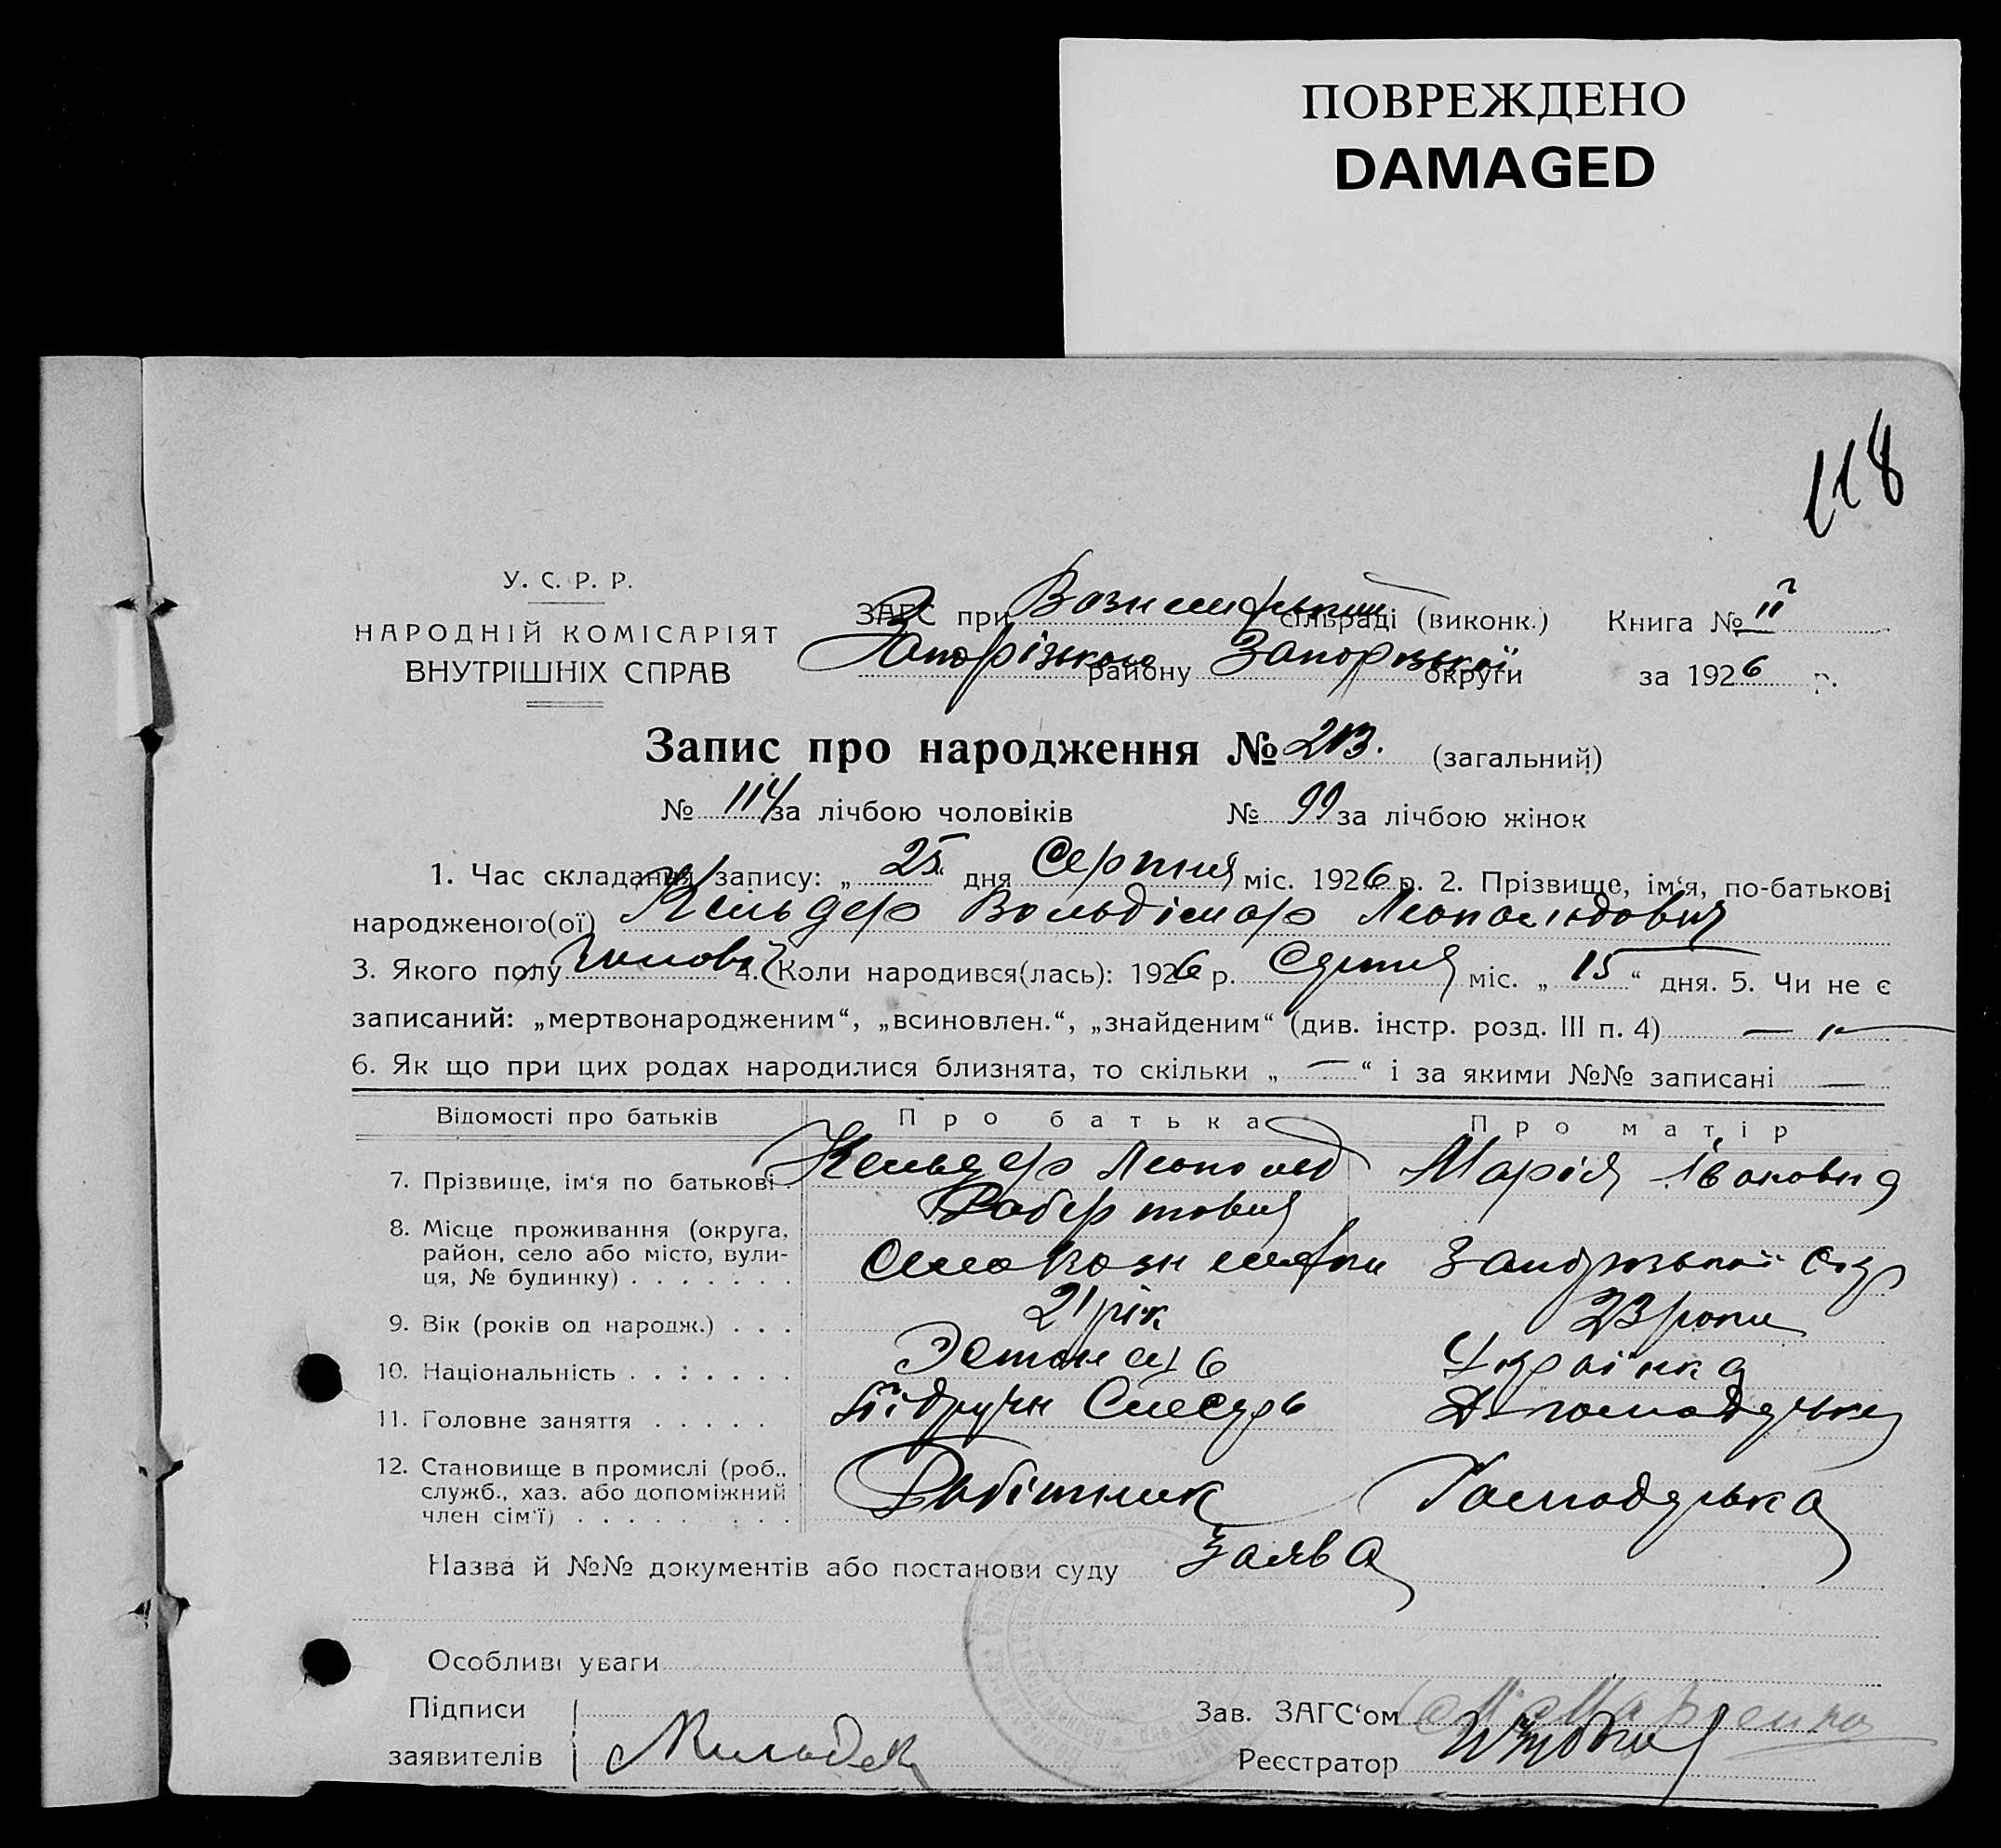 ПОВРЕЖДЕНО
DAMAGED
118
У. С. Р. Р.
НАРОДНІЙ КОМІСАРІЯТ
ВНУТРІШНІХ СПРАВ
ЗАГС при сільраді (виконк.) Книга № II
Запорізького району Запорозької округи за 1926 р.
Запис про народження № 213. (загальний)
№ 114 за лічбою чоловіків № 99 за лічбою жінок
1. Час складання запису: „ 25 “ дня Серпня міс. 1926 р. 2. Прізвище, ім‘я, по-батькові
народженого(ої) Кельдер Вольдімар Леопольдович
3. Якого полу 4. Коли народився(лась): 1926 р. Серпня міс. „ 15 “ дня. 5. Чи не є
записаний: „мертвонародженим“, „всиновлен.“, „знайденим“ (див. інстр. розд. III п. 4) — " —
6. Як що при цих родах народилися близнята, то скільки „ — “ і за якими №№ записані —
Відомості про батьків Про батька Про матір
7. Прізвище, ім‘я по батькові . Кельдер Леополд Робертович Марія Івановна
8. Місце проживання (округа, район, село або місто, вулиця, № будинку) . . . . . . . Село Запорозької Окр
9. Вік (років од народж.) . . . 21 рік 23 роки
10. Національність . . : . . . . Эстонець Українка
11. Головне заняття . . . . . Підручн Слесарь Д-господарька
12. Становище в промислі (роб., служб., хаз. або допоміжний член сім‘ї) . . . . . . . . . Робітник Господарька
Назва й №№ документів або постанови суду Заява
Особливі уваги
Підписи Зав. ЗАГС‘ом
заявителів Реєстратор